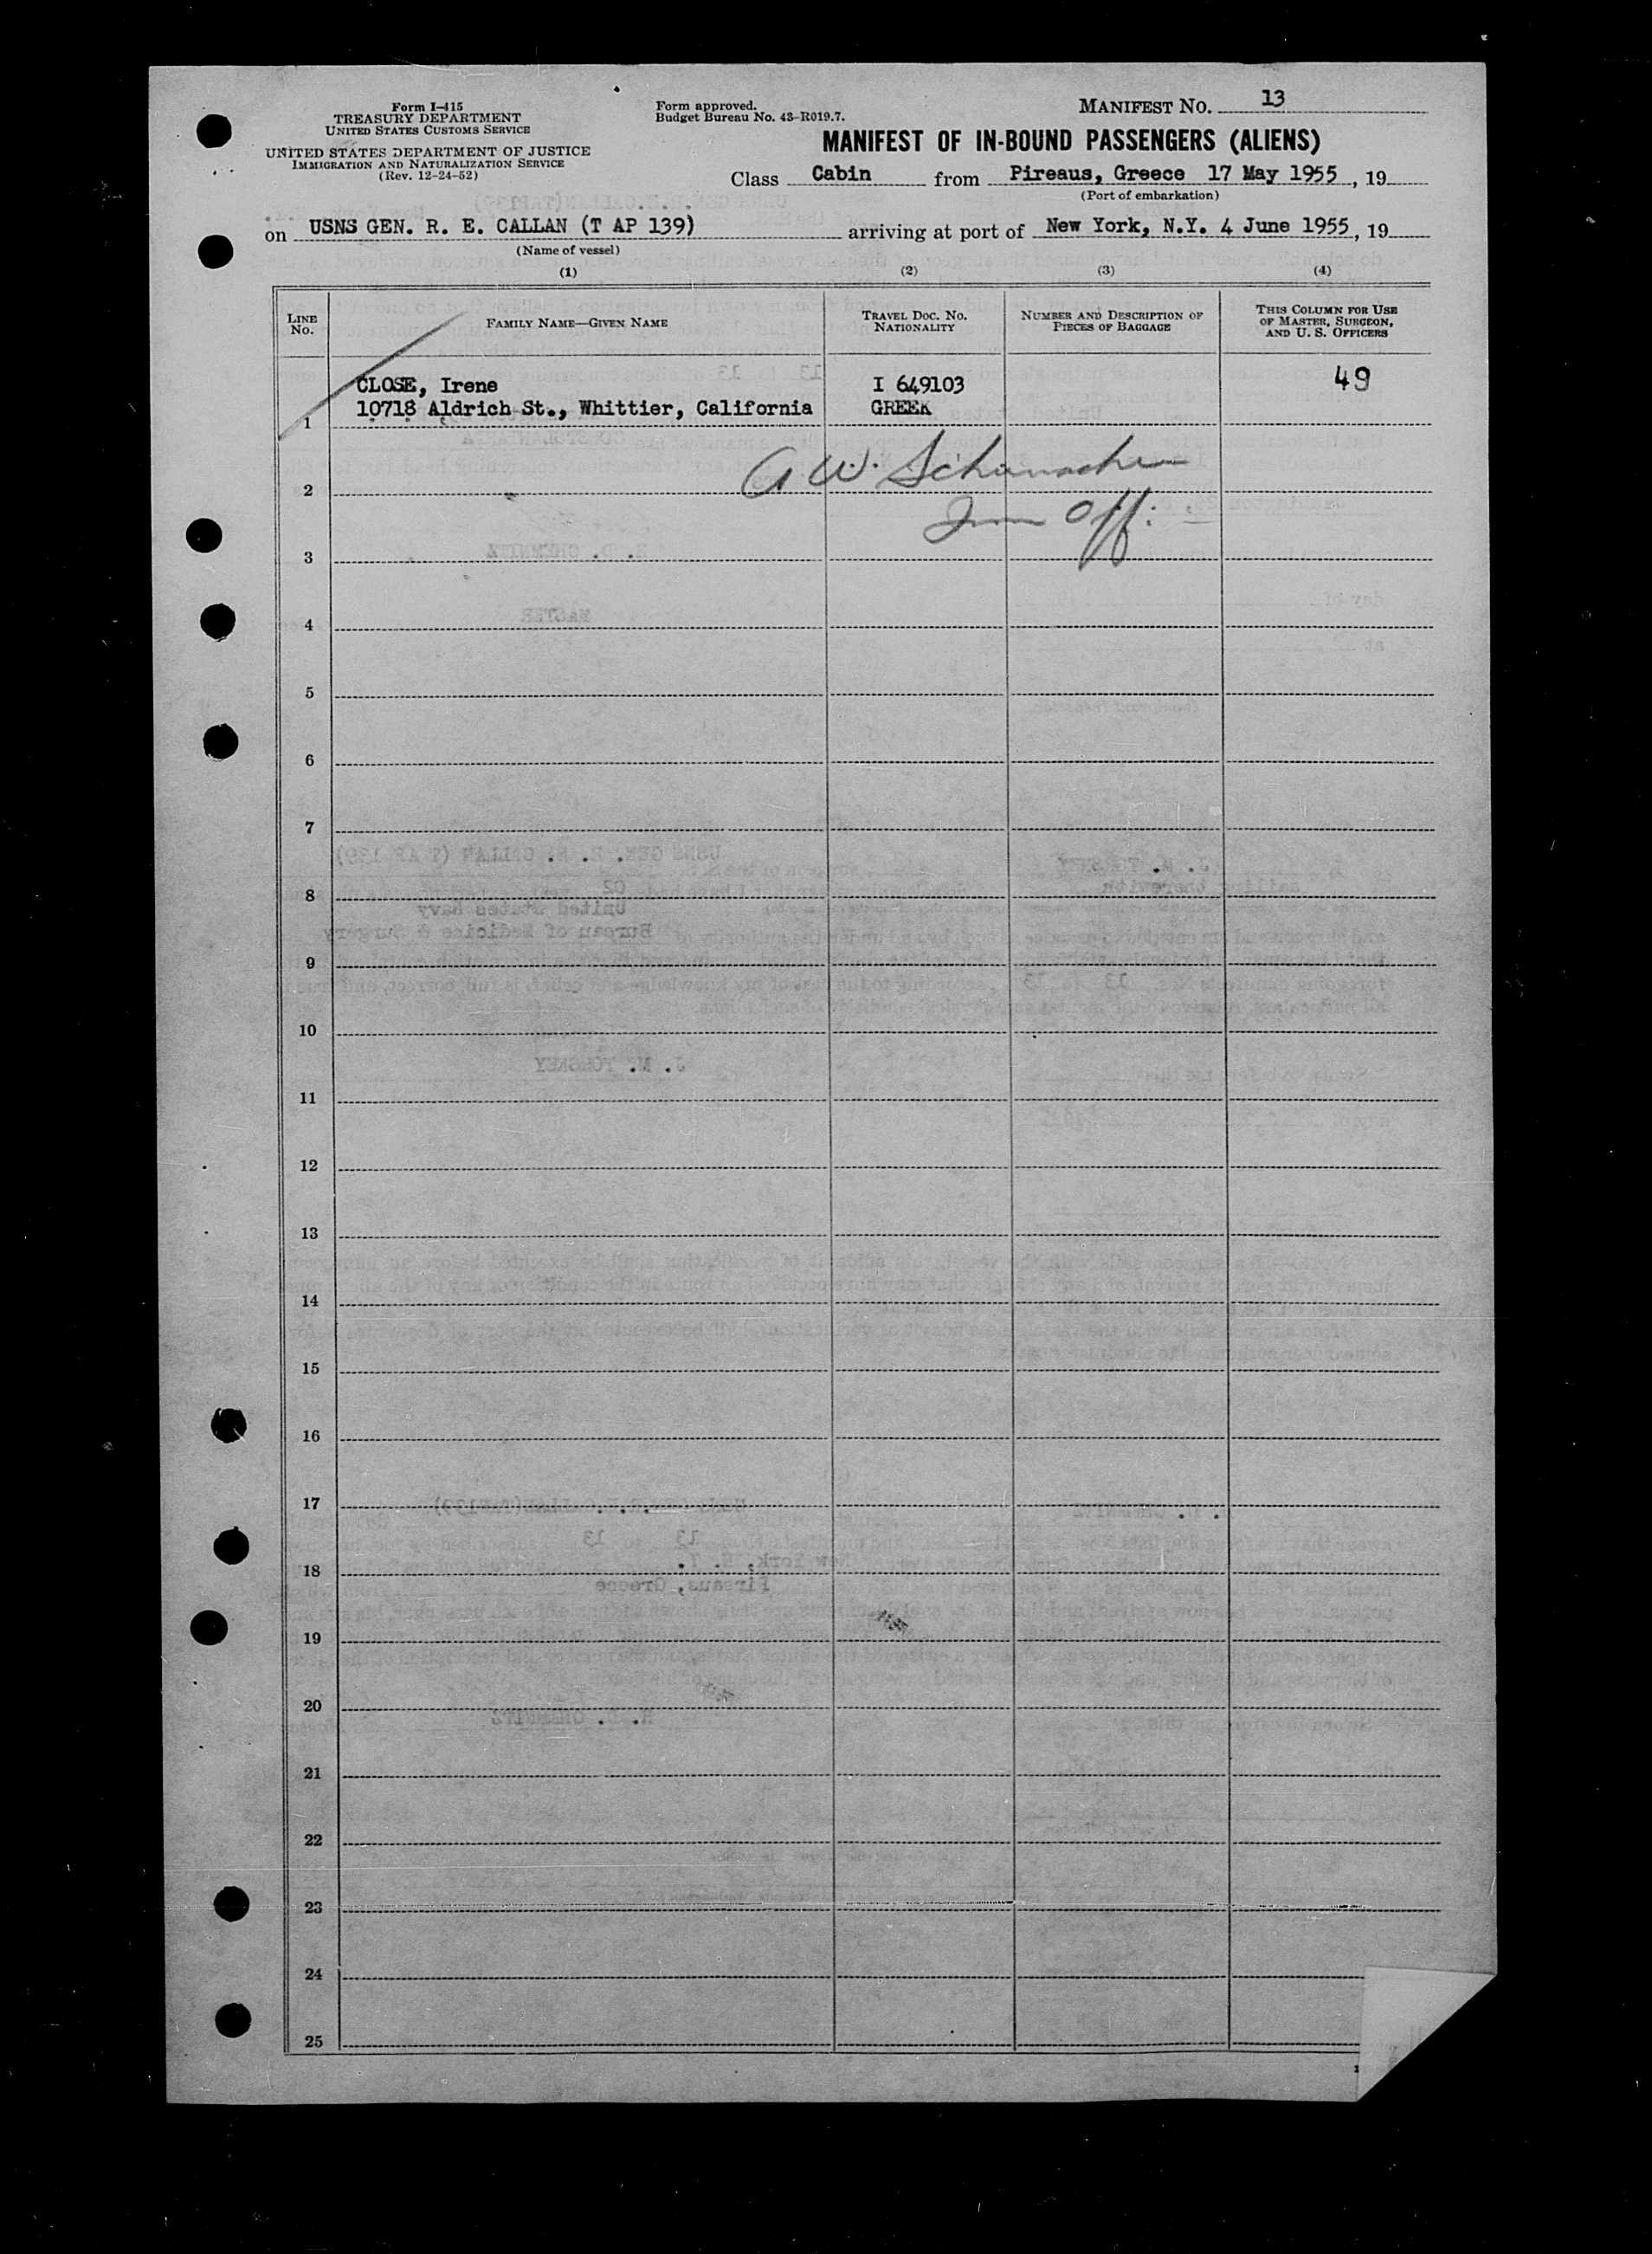 Form I-415
TREASURY DEPARTMENT
UNITED STATES CUSTOMS SERVICE
UNITED STATES DEPARTMENT OF JUSTICE
IMMIGRATION AND NATURALIZATION SERVICE
(Rev. 12-24-52)
Form approved.
Budget Bureau No. 43-R019.7.
MANIFEST NO. 13
MANIFEST OF IN-BOUND PASSENGERS (ALIENS)
Class Cabin from Pireaus, Greece 17 May 1955, 19
(Port of embarkation)
on USNS GEN. R. E. CALLAN (T AP 139) arriving at port of New York, N.Y. 4 June 1955, 19
(Name of vessel)
(1) (2) (3) (4)
LINE NO.
FAMILY NAME—GIVEN NAME
TRAVEL DOC. NO. NATIONALITY
NUMBER AND DESCRIPTION OF PIECES OF BAGGAGE
THIS COLUMN FOR USE OF MASTER, SURGEON, AND U. S. OFFICERS
CLOSE, Irene I 649103 49
1 10718 Aldrich St., Whittier, California GREEK
A W. Schumacher
2
Imm Off.
3
4
5
6
7
8
9
10
11
12
13
14
15
16
17
18
19
20
21
22
23
24
25